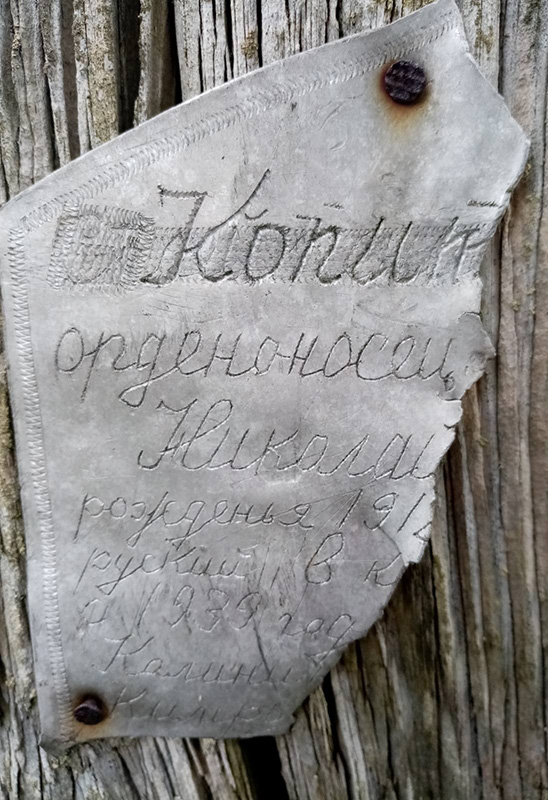 Копин
орденоносец
Николай
рожденья 1912
руский, в к
п 1939 год
Калини
Кимр